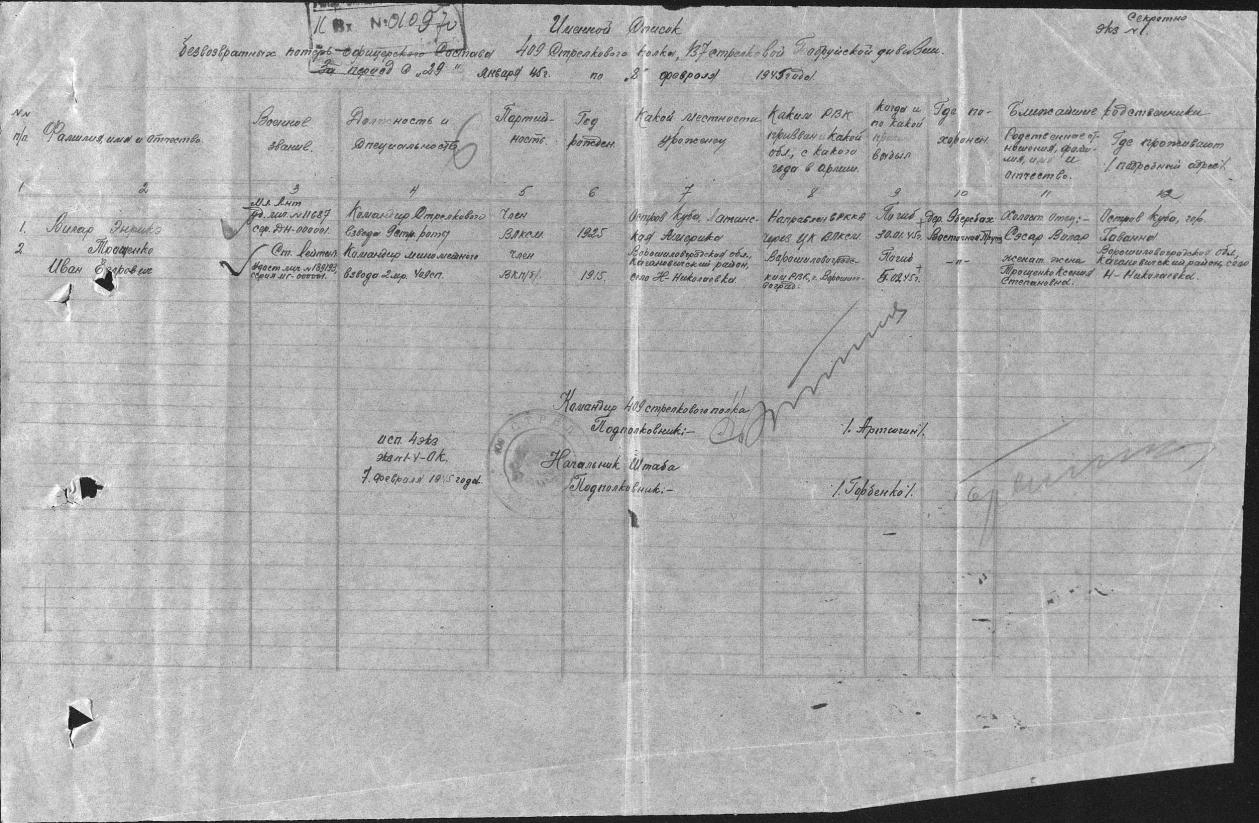 Секретно
экз №1.
Вх №01097с
Именной Список
безвозвратных потерь офицерского Состава 409 Стрелкового полка, 137 стрелковой Бобруйской дивизии.
За период с „29“ января 45г. по „8“ февраля 1945 года.
NN п/п
Фамилия, имя и отчество.
Военное звание.
Должность и Специальность
6
Партийность.
Год рожден.
Какой местности уроженец
Каким РВК призван и какой обл., с какого года в армии.
Когда и по какой прич. выбыл
Где похоронен.
Ближайшие родственники
Родственное отношения, фамилия, имя и отчество.
Где проживают / подробный адрес/.
1 2 3 4 5 6 7 8 9 10 11 12
1.
Вилар Энрико
Мл. Лнт
уд. лич. №11687
сер. ДН-00001.
Командир Стрелкового
взвода 9 стр. роты
Член
ВЛКСМ.
1925
Остров Куба, Латинс-
кая Америка
Направлен в РККА
через ЦК ВЛКСМ.
Погиб
30.01.45г.
Гор. Эбербах
Восточная Прус
Холост Отец:-
Сэсар Вилар
Остров Куба, гор.
Гаванна
2
Трощенко
Иван Егорович
Ст. Лейтен
Командир минометного
взвода 2 мр.
член
ВКП/б/.
1915.
Ворошиловградская обл,
Кагановичский район,
село Н-Николаевка.
Ворошиловградс-
ким РВК, г. Ворошил-
овоград.
Погиб
5.02.45г.
-п-
женат жена
Трощенко Ксения
Степановна.
Ворошиловоградская обл,
Кагановичский район, село
Н-Николаевка.
Командир 409 стрелкового полка
Подполковник:-
/. Артюгин/.
исп. 4 экз
экз№1-У-ОК.
7 февраля 1945 года.
Начальник Штаба
Подполковник:-
/. Горбенко/.